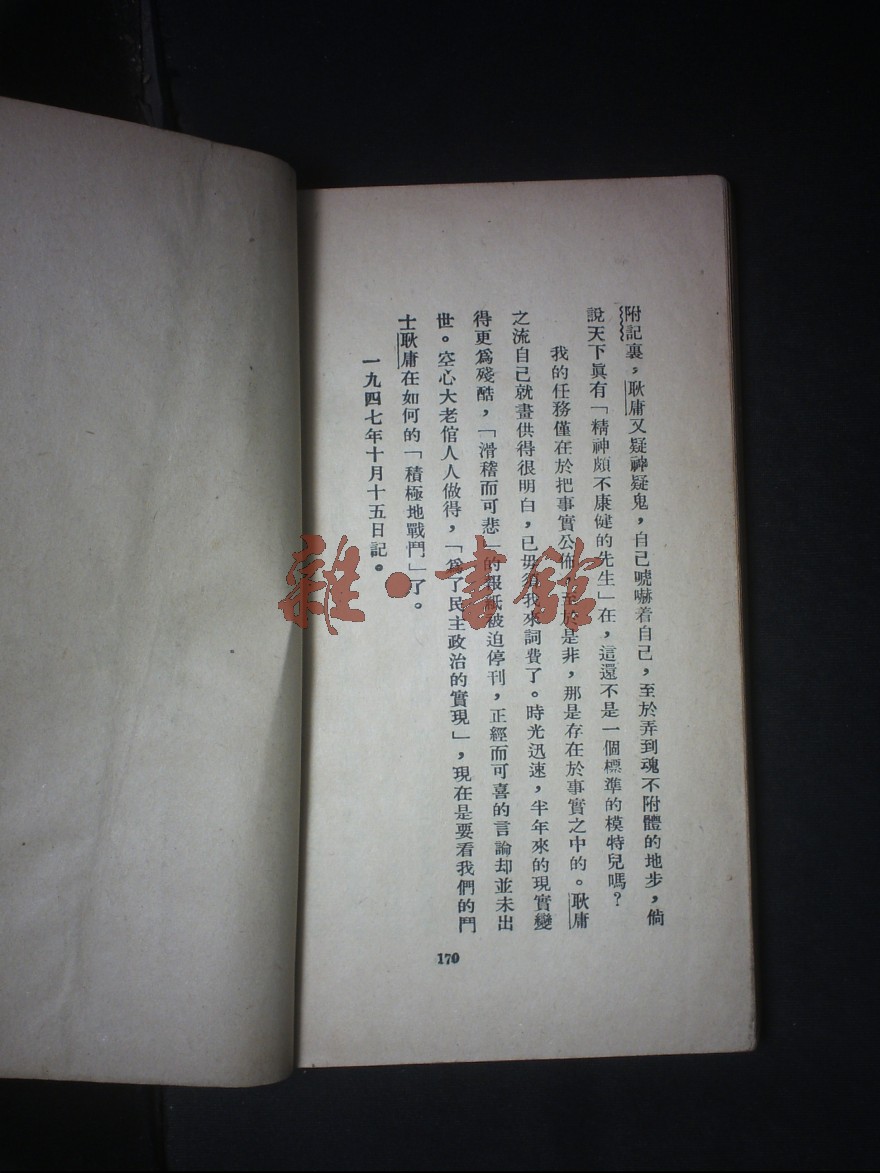 附記裏，耿庸又疑神疑鬼，自己唬嚇着自己，至於弄到魂不附體的地步，倘
說天下眞有「精神頗不康健的先生」在，這還不是一個標準的模特兒嗎？
我的任務僅在於把事實公佈，至於是非，那是存在於事實之中的。耿庸
之流自己就畫供得很明白，已毋須我來詞費了。時光迅速，半年來的現實變
得更爲殘酷，「滑稽而可悲」的報紙被迫停刊，正經而可喜的言論却並未出
世。空心大老倌人人做得，「爲了民主政治的實現」，現在是要看我們的鬥
士耿庸在如何的「積極地戰鬥」了。
一九四七年十月十五日記。
170
雜·書館